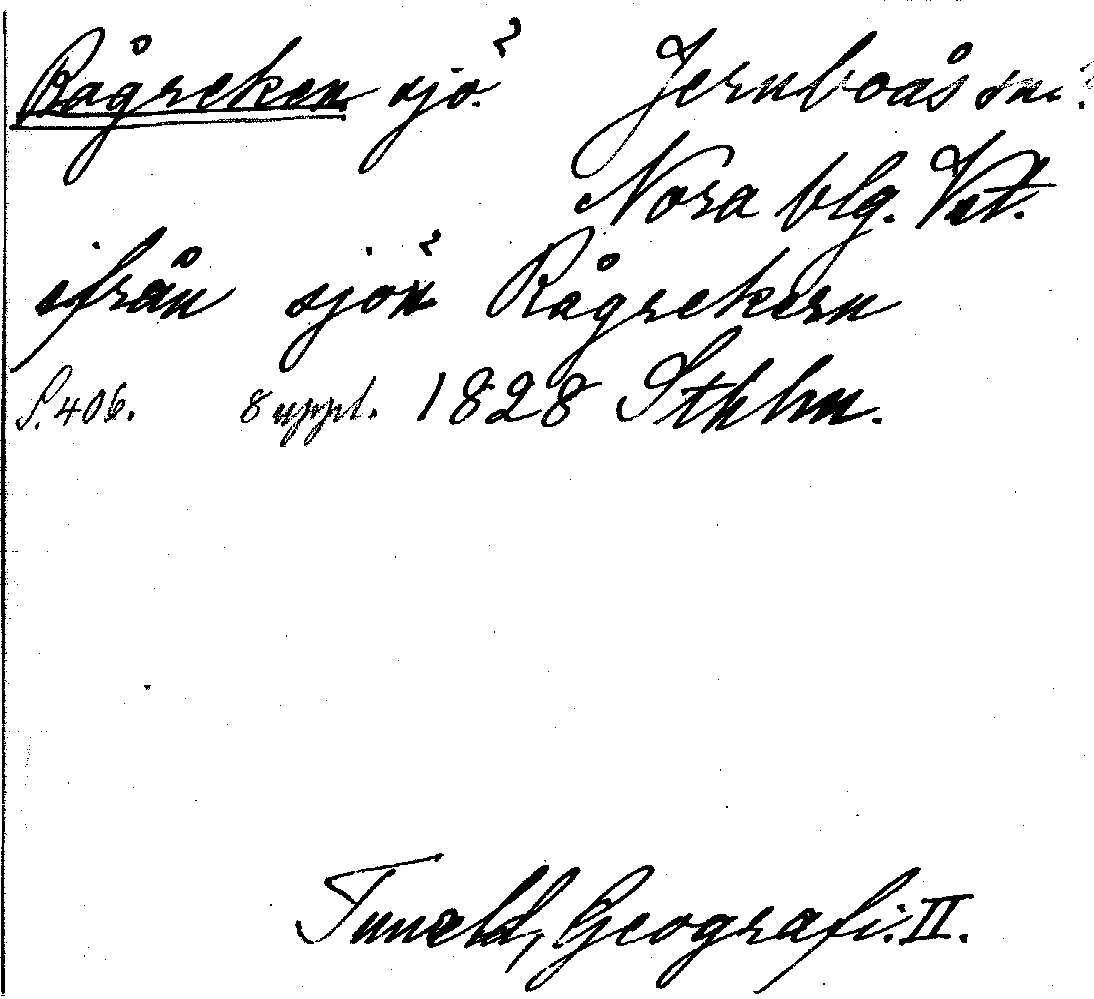 Rågreken sjö? Jernboås sn.?
Nora blg. Vstl.
ifrån sjön Rågrekern
S. 406. 8 uppl. 1828 Sthlm.
Tuneld, Geografi. II.